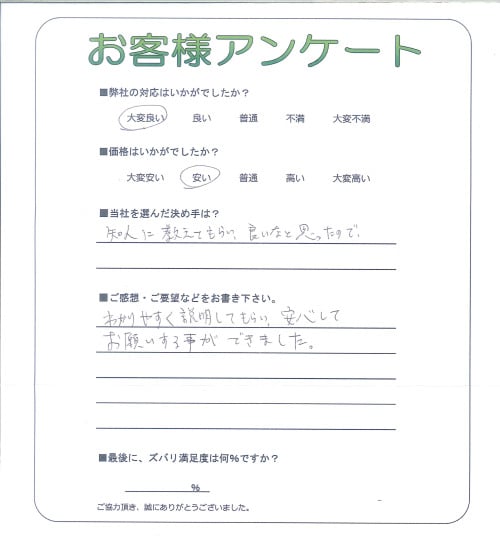 お客様アンケート
■弊社の対応はいかがでしたか？
大変良い 良い 普通 不満 大変不満
■価格はいかがでしたか？
大変安い 安い 普通 高い 大変高い
■当社を選んだ決め手は？
知人に教えてもらい、良いなと思ったので、
■ご感想・ご要望などをお書き下さい。
わかりやすく説明してもらい、安心して
お願いする事ができました。
■最後に、ズバリ満足度は何%ですか？
%
ご協力頂き、誠にありがとうございました。